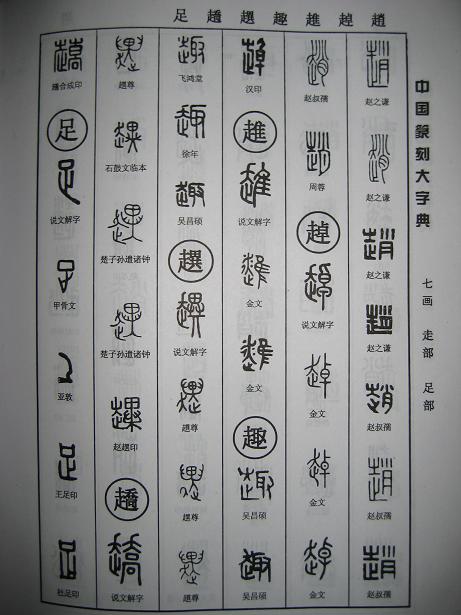 足 趫 趩 趣 趡 趠 趙
中国篆刻大字典
七画 走部 足部
赵之谦
赵之谦
赵之谦
赵之谦
赵叔孺
赵叔孺
赵叔孺
赵叔孺
周尊
趠
说文解字
金文
金文
金文
汉印
趡
说文解字
金文
金文
趣
吴昌硕
吴昌硕
飞鸿堂
徐年
吴昌硕
趩
说文解字
趩尊
趩尊
趩尊
趩尊
石鼓文临本
楚子孙遗诸钟
楚子孙遗诸钟
赵趩印
趫
说文解字
趫合成印
足
说文解字
甲骨文
亚敦
王足印
杜足印